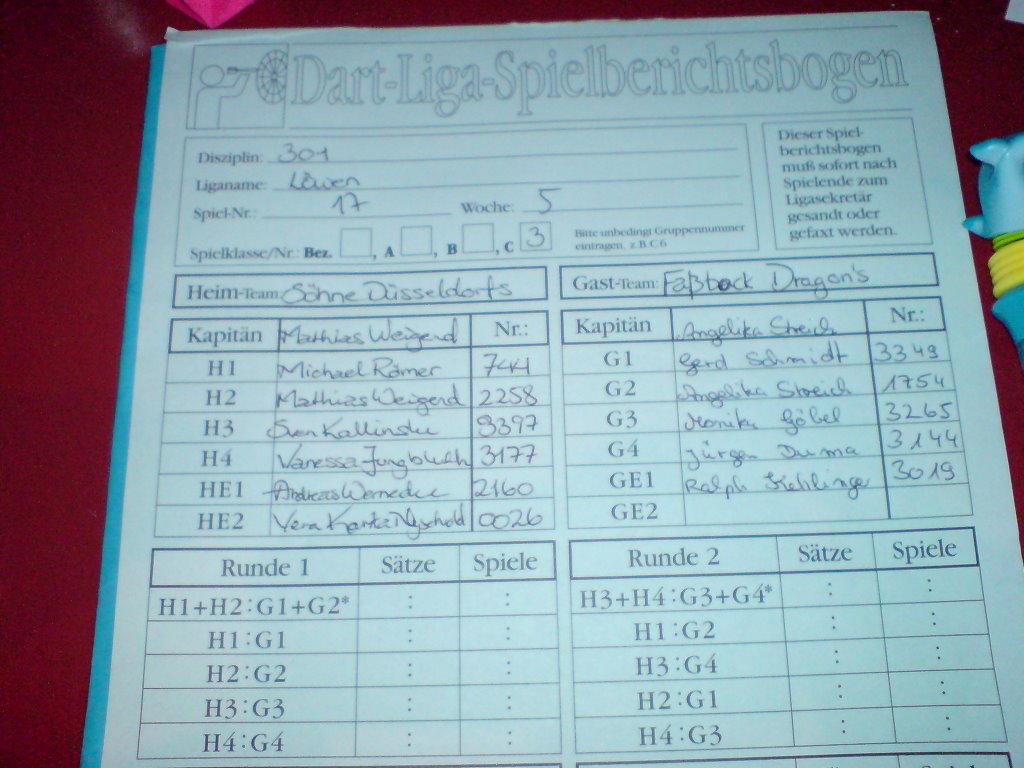 Dart-Liga-Spielberichtsbogen
Disziplin: 301
Liganame: Löwen
Spiel-Nr.: 17 Woche: 5
Spielklasse/Nr.: Bez. , A , B , C 3
Bitte unbedingt Gruppennummer
eintragen, z.B C 6
Dieser Spiel-
berichtsbogen
muß sofort nach
Spielende zum
Ligasekretär
gesandt oder
gefaxt werden.
Heim-Team: Söhne Düsseldorfs
Kapitän Mathias Weigend Nr.:
H1 Michael Römer
H2 Mathias Weigend 2258
H3 Sven 3397
H4 Vanessa Jungbluth 3177
HE1 Andreas Wernecke 2160
HE2 Vera 0026
Gast-Team: Faßbock Dragon's
Kapitän Angelika Streich Nr.:
G1 Gerd Schmidt 3349
G2 Angelika Streich 1754
G3 Monika Göbel 3265
G4 Jürgen Duma 3144
GE1 Ralph 3019
GE2
Runde 1 Sätze Spiele
H1+H2:G1+G2* : :
H1:G1 : :
H2:G2 : :
H3:G3 : :
H4:G4 : :
Runde 2 Sätze Spiele
H3+H4:G3+G4* : :
H1:G2 : :
H3:G4 : :
H2:G1 : :
H4:G3 : :